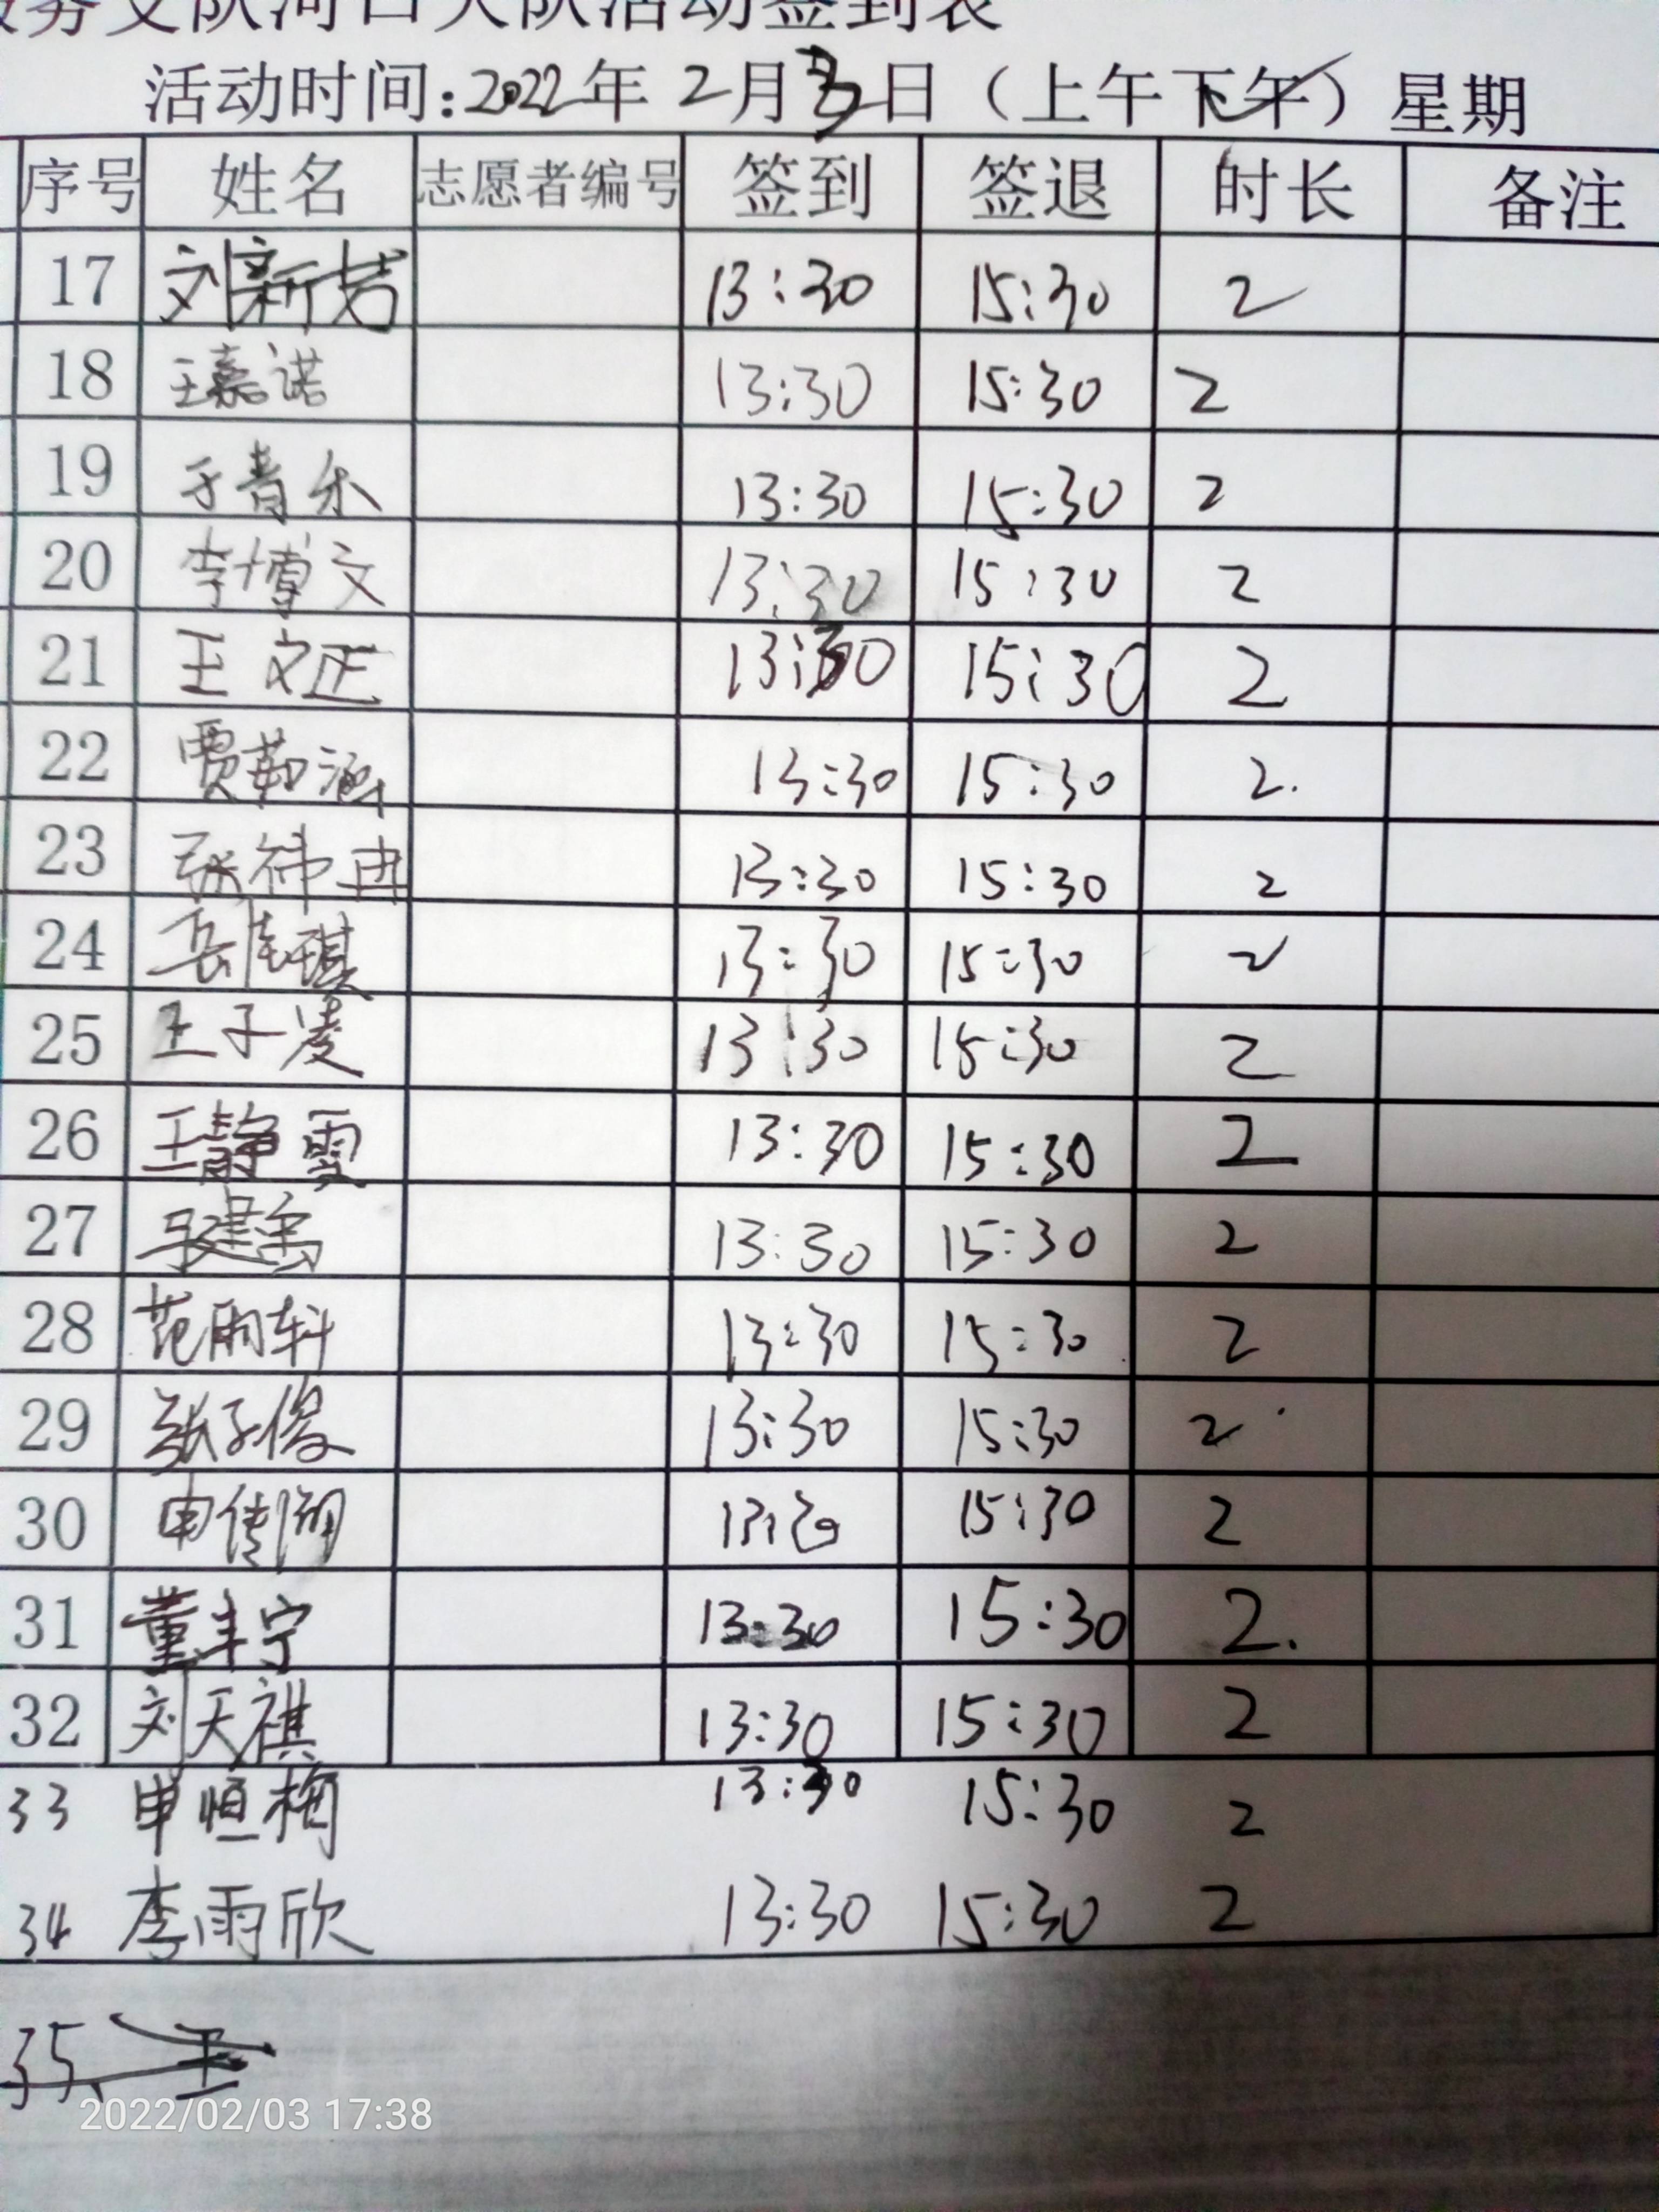 服务支队河口大队活动签到表
活动时间:2022年 2月3日（上午下午）星期
序号 姓名 志愿者编号 签到 签退 时长 备注
17 刘新芳 13:30 15:30 2
18 王嘉诺 13:30 15:30 2
19 于青乐 13:30 15:30 2
20 李博文 13:30 15:30 2
21 王文正 13:30 15:30 2
22 贾茹涵 13:30 15:30 2.
23 张祎冉 13:30 15:30 2
24 岳佳琪 13:30 15:30 2
25 王子凌 13:30 15:30 2
26 王静雯 13:30 15:30 2
27 13:30 15:30 2
28 范雨轩 13:30 15:30 2
29 张子俊 13:30 15:30 2
30 申传湖 13:30 15:30 2
31 董丰宁 13:30 15:30 2.
32 刘天祺 13:30 15:30 2
33 申恒梅 13:30 15:30 2
34 李雨欣 13:30 15:30 2
35、王
2022/02/03 17:38